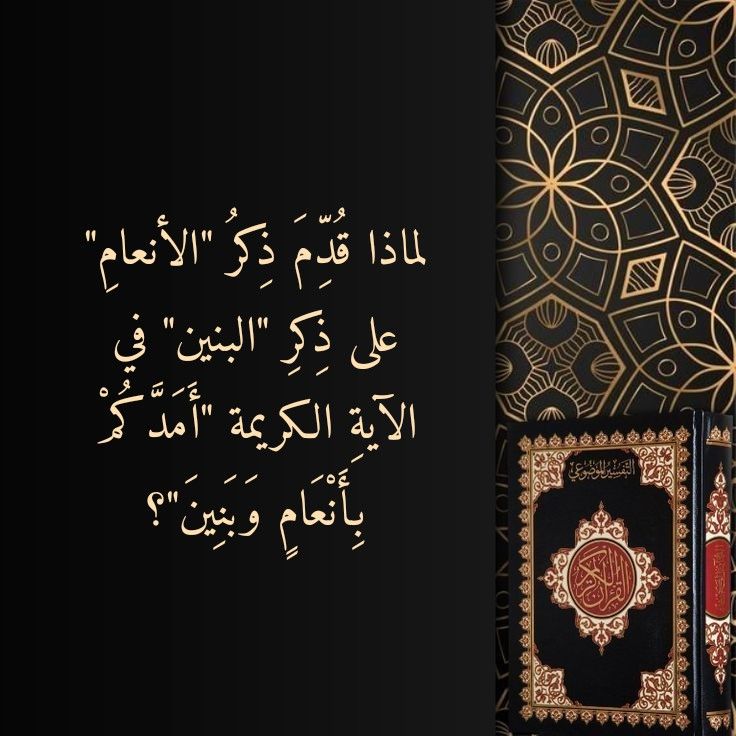 لماذا قُدِّمَ ذِكرُ "الأنعامِ"
على ذِكرِ "البنين" في
الآيةِ الكريمة "أَمَدَّكُمْ
بِأَنْعَامٍ وَبَنِينَ"؟
التفسير الموضوعي
القرآن الكريم